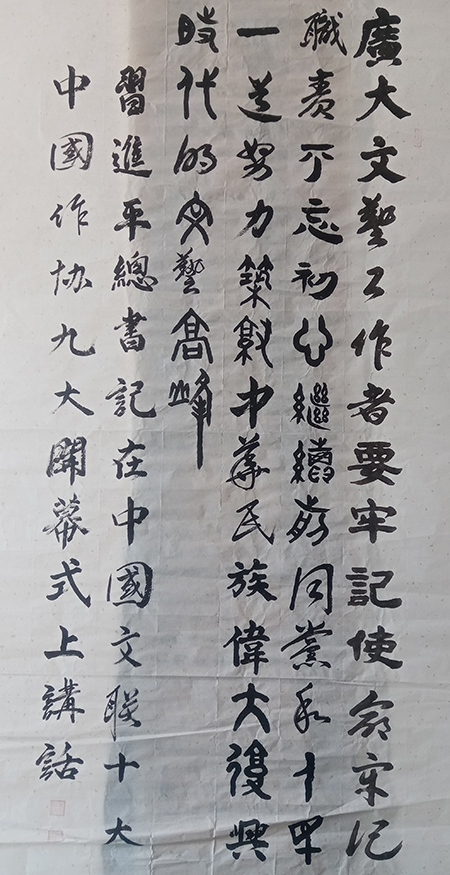 廣大文藝工作者要牢記使命牢記
職責不忘初心繼續前同黨和
一道努力築就中華民族偉大復興
時代的文藝高峰
習進平總書記在中國文聯十大
中國作协九大開幕式上講話